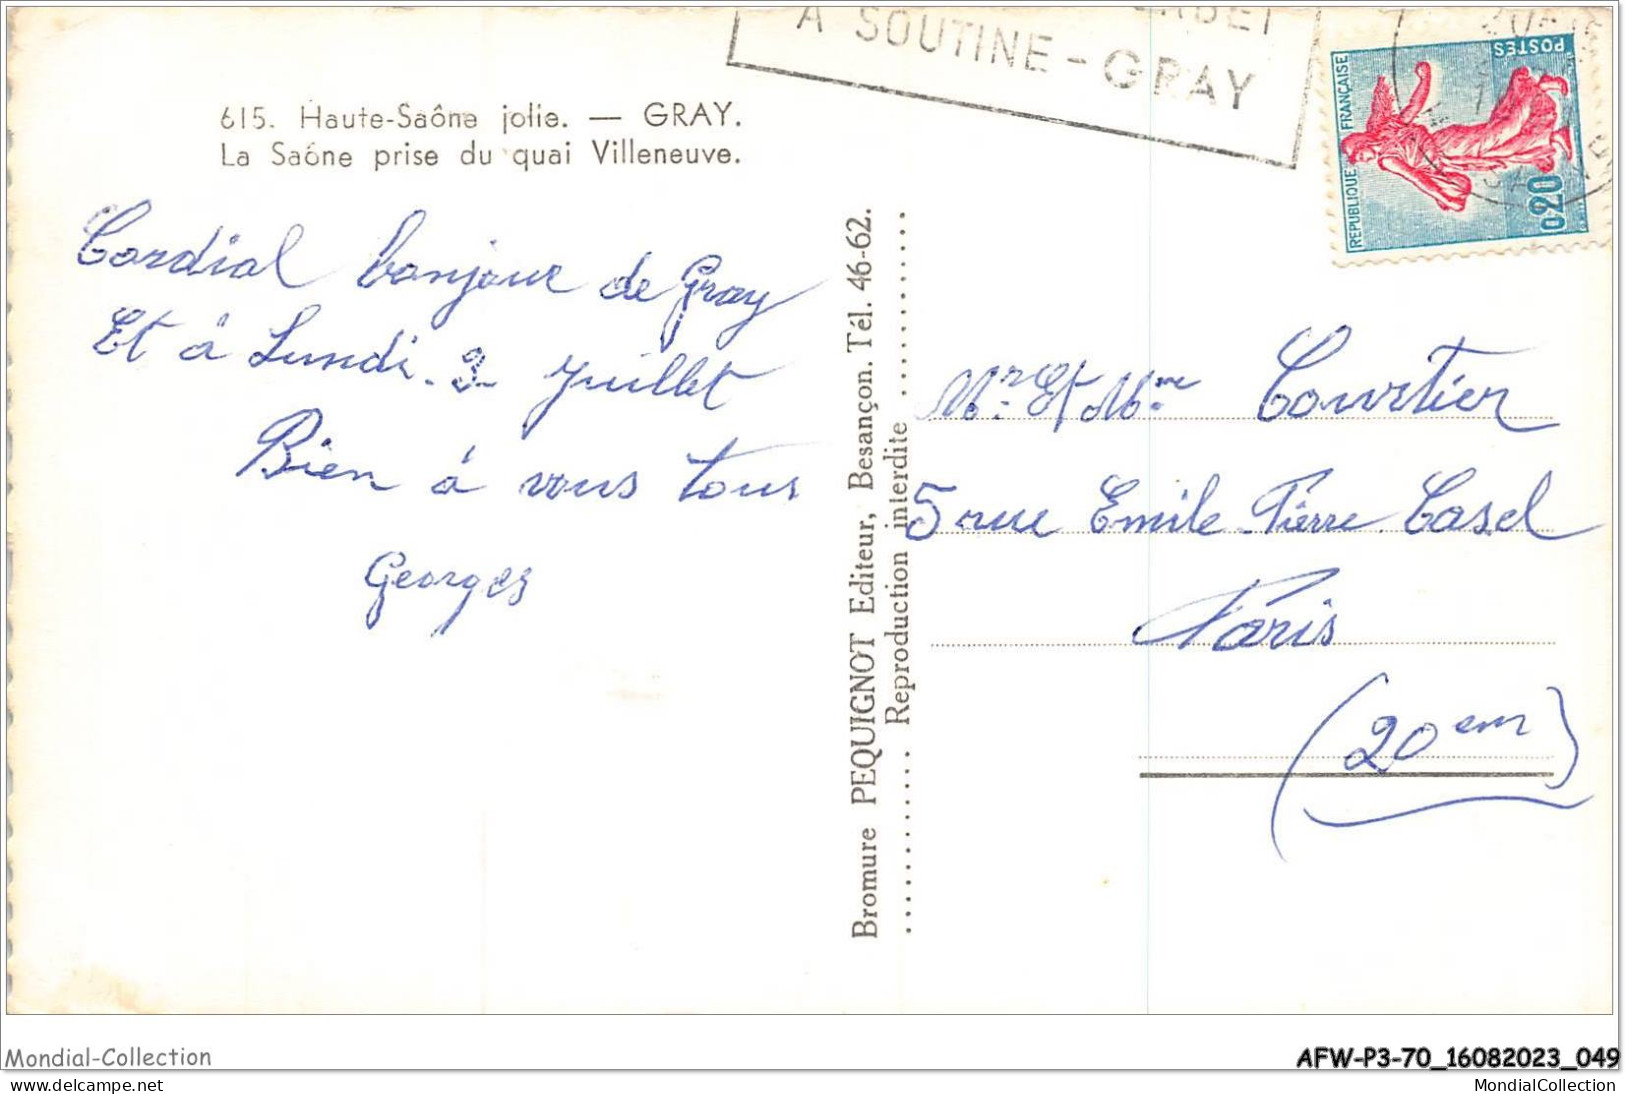 A SOUTINE - GRAY
POSTES
REPUBLIQUE FRANÇAISE
0,20
615. Haute-Saône jolie. — GRAY.
La Saône prise du quai Villeneuve.
Cordial bonjour de Gray
Et à Lundi. 3 Juillet
Bien à vous tous
Georges
Bromure PEQUIGNOT Editeur, Besançon. Tél. 46-62.
Reproduction interdite
Mr. Et Mme Courtier
5 rue Emile-Pierre Casel
Paris
(20em)
Mondial-Collection
AFW-P3-70_16082023_049
MondialCollection.net
MondialCollection